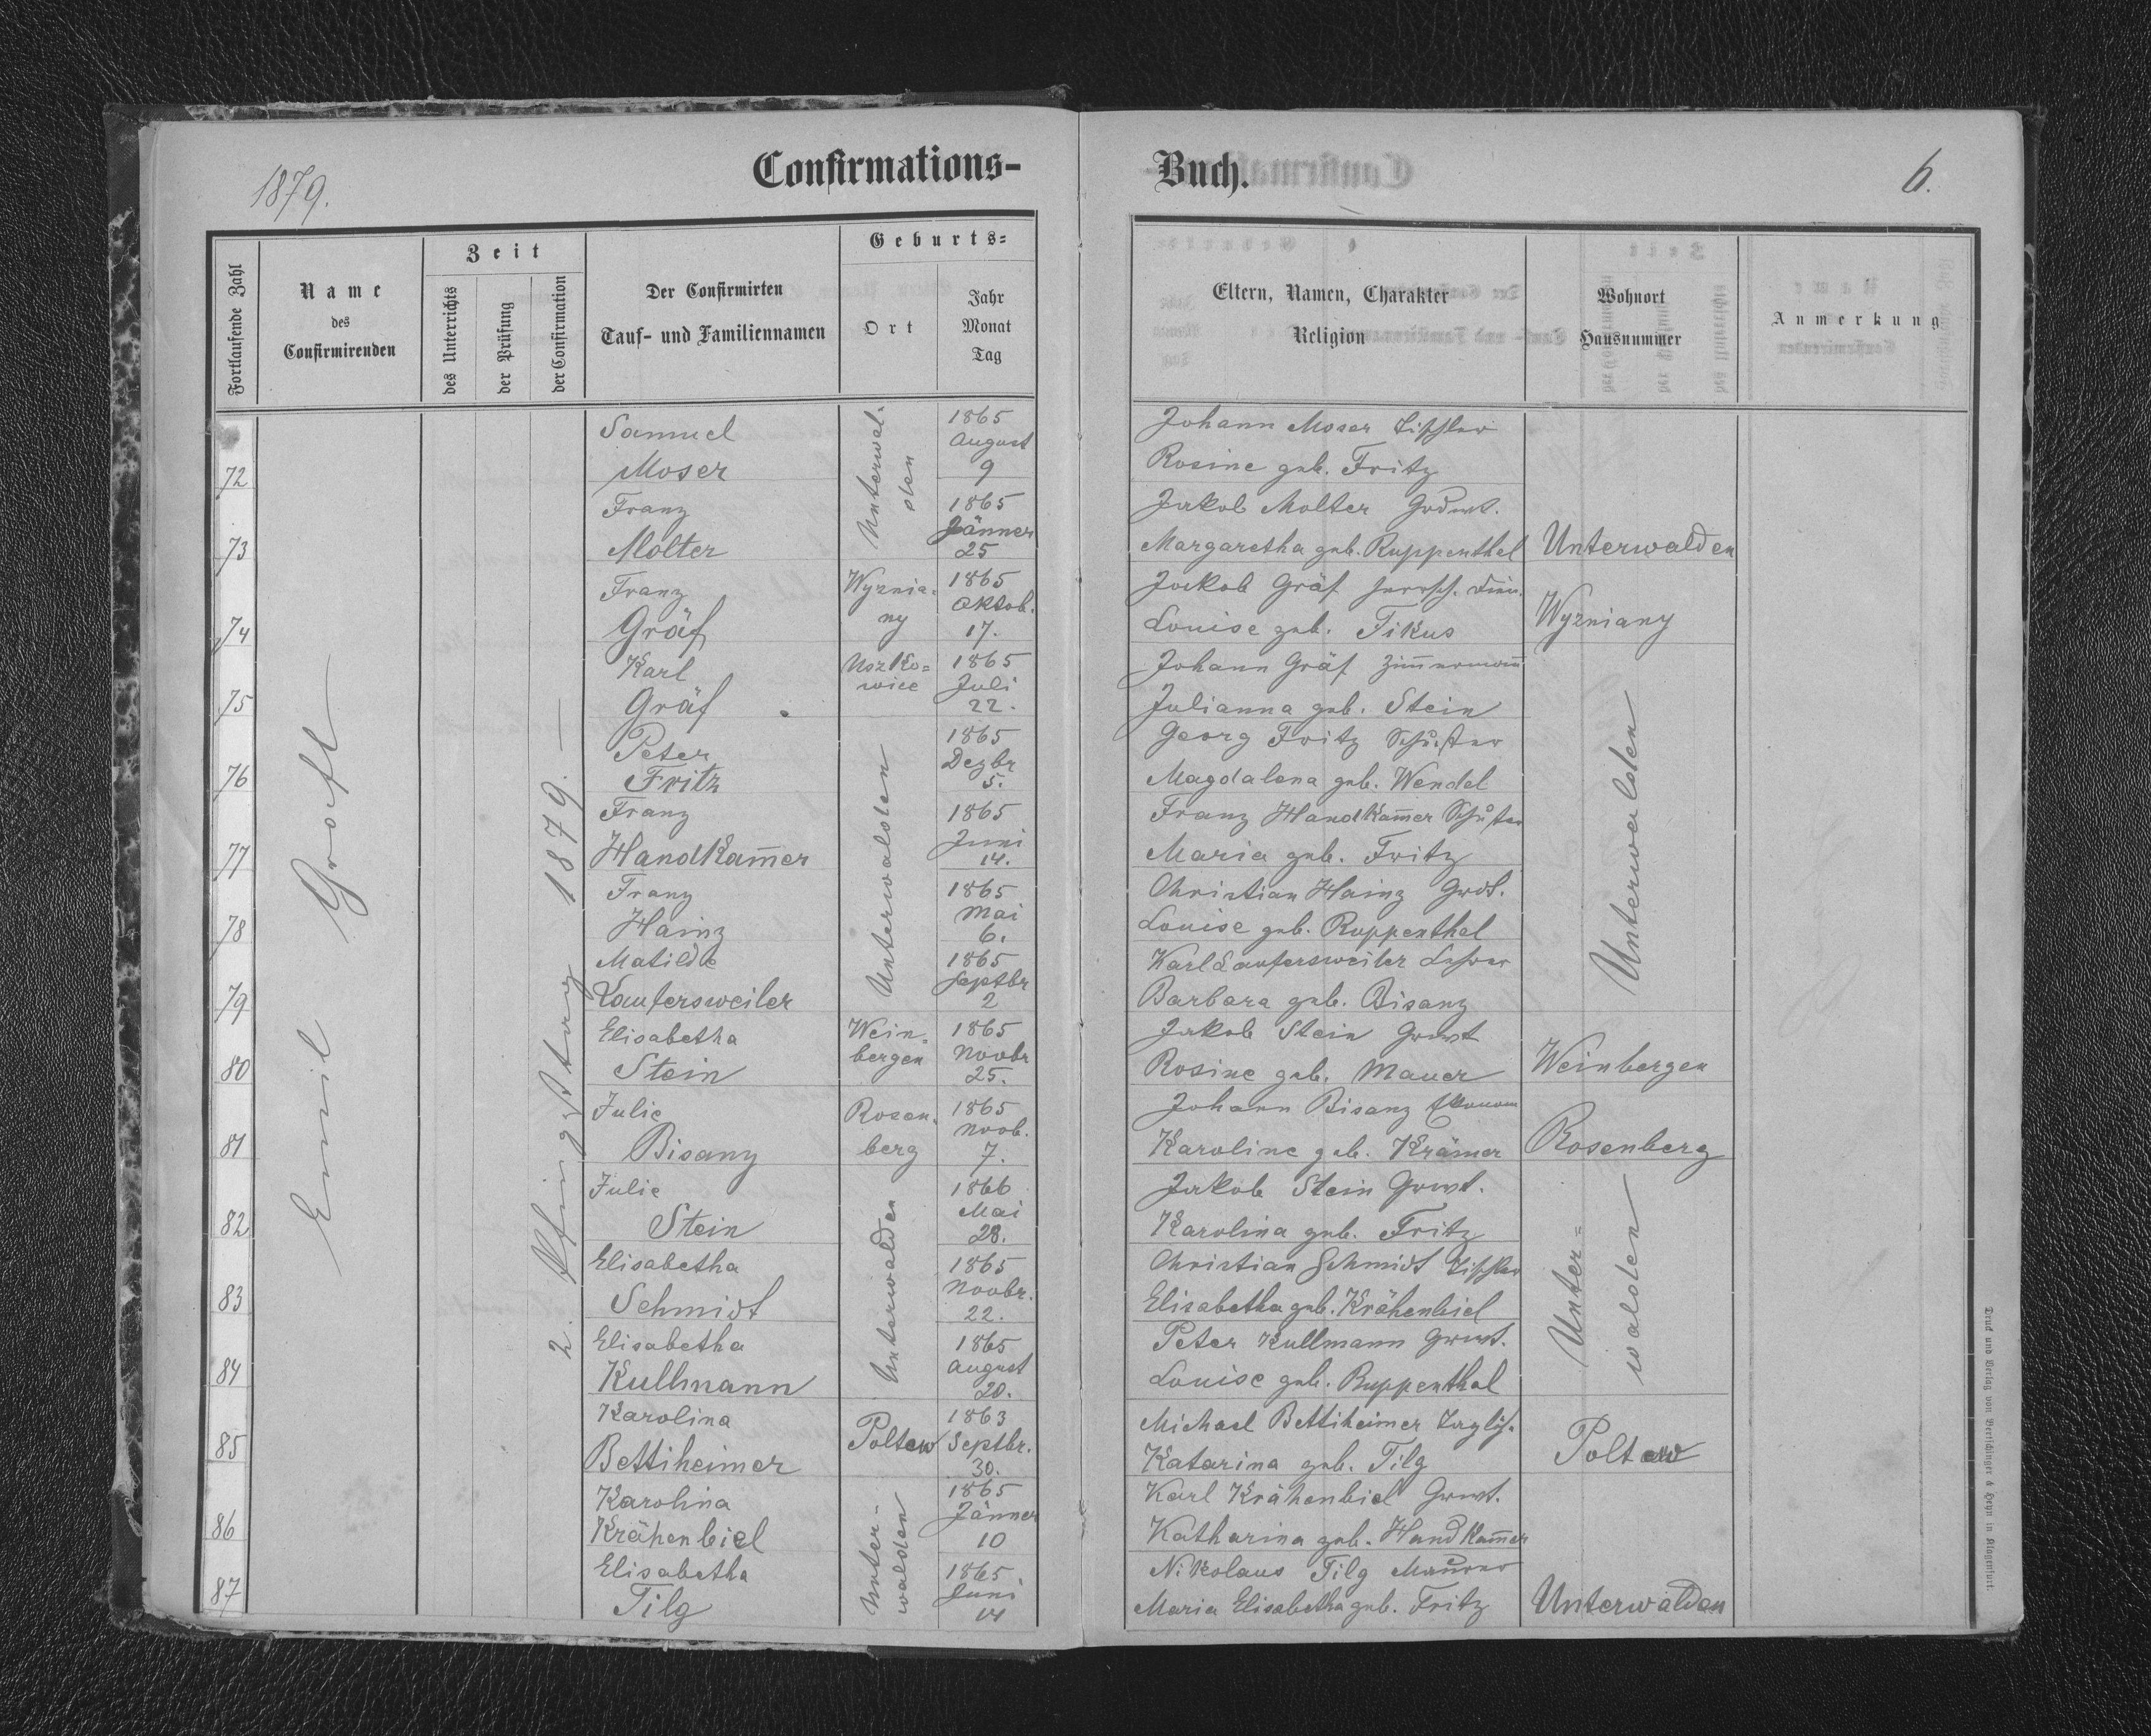 1879.
Confirmations-
Buch.
6.
Fortlaufende Zahl
Name
des
Confirmirenden
Zeit
des Unterrichts
der Prüfung
der Confirmation
Der Confirmirten
Tauf- und Familiennamen
Geburts-
Ort
Jahr
Monat
Tag
Eltern, Namen, Charakter
Religion
Wohnort
Hausnummer
Anmerkung
Emil
2. Pfingsttag 1879. —
72
Samuel
Moser
Unterwal-
den
1865
August
9
Johann Moser Tischler
Rosine geb. Fritz
73
Franz
Molter
1865
Jänner
25
Jakob Molter
Margaretha geb. Ruppenthal
Unterwalden
74
Franz
Gräf
Wyznia-
ny
1865
Oktob.
17.
Jackob Gräf herrsch.
Louise geb. Fikus
Wyzniany
75
Karl
Gräf
Uszko-
wice
1865
Juli
22.
Johann Gräf Zimmermann
Julianna geb. Stein
Unterwalden
76
Peter
Fritz
Unterwalden
1865
Dezbr
5.
Georg Fritz Schuster
Magdalena geb. Wendel
77
Franz
Handkam̅er
1865
Juni
14.
Franz Handkam̅er Schuster
Maria geb. Fritz
78
Franz
Hainz
1865
Mai
6.
Christian Hainz
Louise geb. Ruppenthal
79
Matilde
Laufersweiler
1865
Septbr
2
Karl Laufersweiler Lehrer
Barbara geb. Bisanz
80
Elisabetha
Stein
Wein-
bergen
1865
Novbr
25.
Jakob Stein Grwt
Rosine geb. Mauer
Weinbergen
81
Julie
Bisanz
Rosen-
berg
1865
Novb.
7.
Johann Bisanz Ekonom
Karoline geb. Krämer
Rosenberg
82
Julie
Stein
Unterwalden
1866
Mai
28.
Jakob Stein Grwt.
Karolina geb. Fritz
Unter=
walden
83
Elisabetha
Schmidt
1865
Novbr.
22.
Christian Schmidt Tischler
Elisabetha geb. Krähenbiel
84
Elisabetha
Kullmann
1865
August
20.
Peter Kullmann Grwt.
Louise geb. Ruppenthal
85
Karolina
Bettiheimer
Poltew
1863
Septbr.
30.
Michael Bettiheimer Taglöh.
Katarina geb. Tilg
Poltew
86
Karolina
Krähenbiel
Unter-
walden
1865
Jänner
10
Karl Krähenbiel Grwt.
Katharina geb. Handkam̅er
87
Elisabetha
Tilg
1865
Juni
14
Nikolaus Tilg Maurer
Maria Elisabetha geb. Fritz
Unterwalden
Druck und Verlag von Bertschinger & Heyn in Klagenfurt.